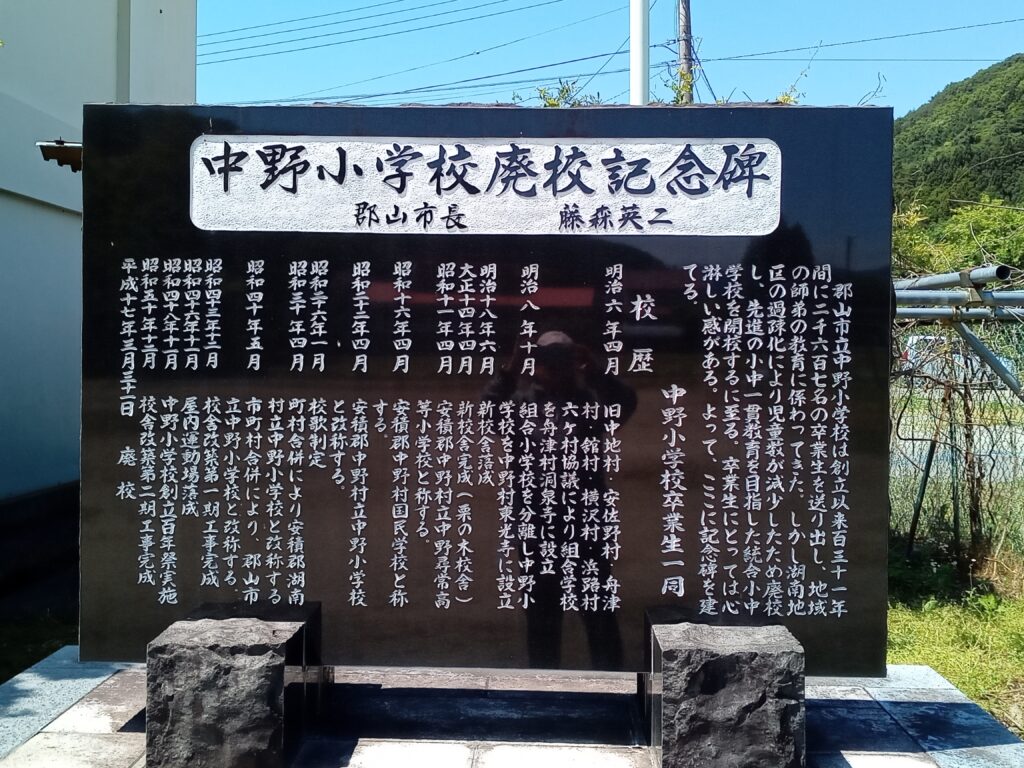 中野小学校廃校記念碑
郡山市長　藤森英二
郡山市立中野小学校は創立以来百三十一年
間に二千六百七名の卒業生を送り出し、地域
の師弟の教育に係わってきた。しかし湖南地
区の過疎化により児童数が減少したため廃校
し、先進の小中一貫教育を目指した統合小中
学校を開校するに至る。卒業生にとっては心
淋しい感がある。よって、ここに記念碑を建
てる。
中野小学校卒業生一同
校歴
明治六年四月　旧中地村・安佐野村・舟津
村・舘村・横沢村・浜路村
六ヶ村協議により組合学校
を舟津村洞泉寺に設立
明治八年十月　組合小学校を分離し中野小
学校を中野村東光寺に設立
明治十八年六月　新校舎落成
大正十四年四月　新校舎完成（栗の木校舎）
昭和十一年四月　安積郡中野村立中野尋常高
等小学校と称する。
昭和十六年四月　安積郡中野村国民学校と称
する。
昭和二十二年四月　安積郡中野村立中野小学校
と改称する。
昭和二十六年一月　校歌制定
昭和三十年四月　町村合併により安積郡湖南
村立中野小学校と改称する
昭和四十年五月　市町村合併により、郡山市
立中野小学校と改称する。
昭和四十三年十二月　校舎改築第一期工事完成
昭和四十六年十二月　屋内運動場落成
昭和四十八年十一月　中野小学校創立百年祭実施
昭和五十年十二月　校舎改築第二期工事完成
平成十七年三月三十一日　廃校